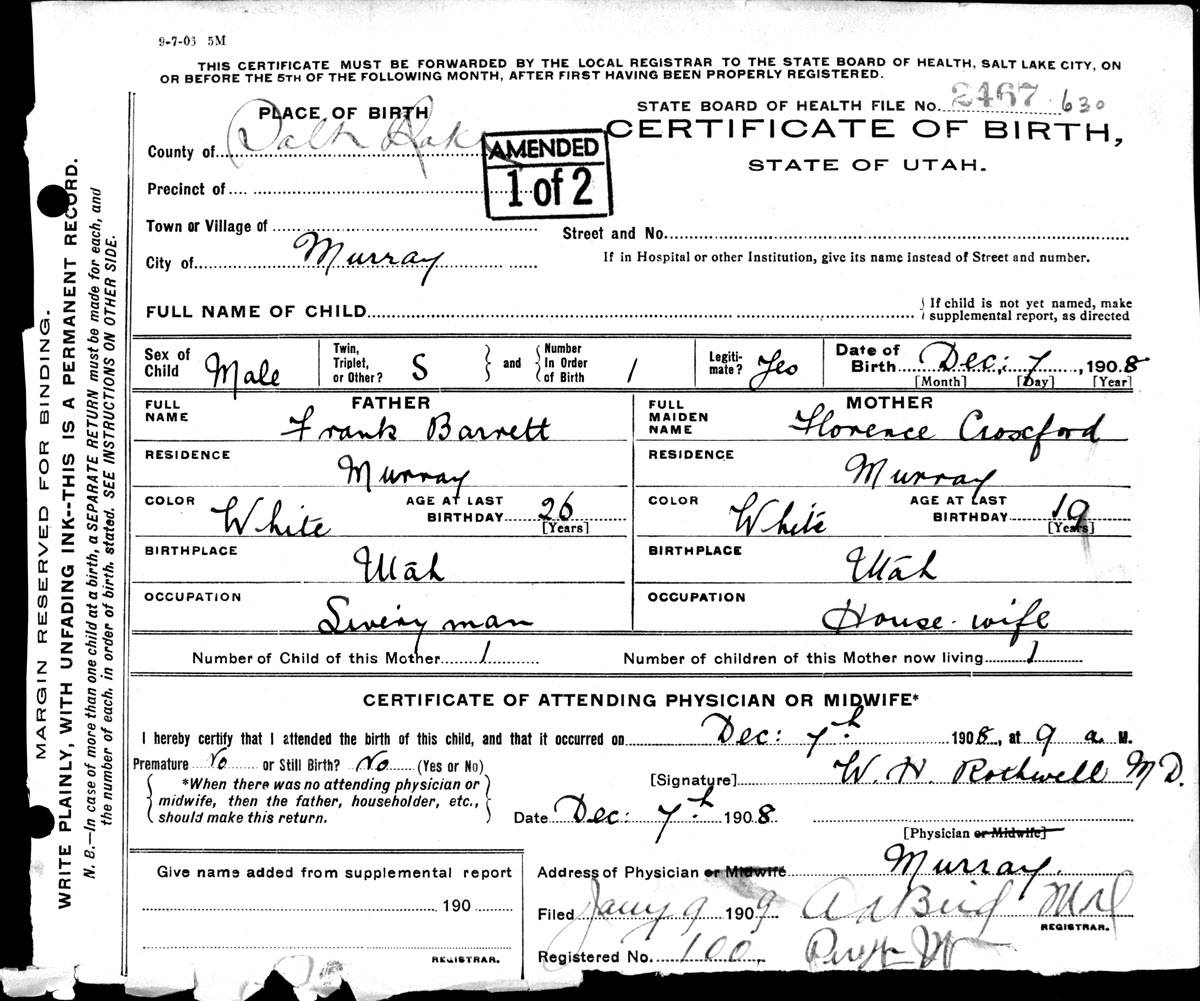 9-7-03 5M
THIS CERTIFICATE MUST BE FORWARDED BY THE LOCAL REGISTRAR TO THE STATE BOARD OF HEALTH, SALT LAKE CITY, ON
OR BEFORE THE 5TH OF THE FOLLOWING MONTH, AFTER FIRST HAVING BEEN PROPERLY REGISTERED.
PLACE OF BIRTH
STATE BOARD OF HEALTH FILE No. 2467 630
CERTIFICATE OF BIRTH,
STATE OF UTAH.
County of Salt Lake
AMENDED
1 of 2
Precinct of
Town or Village of
Street and No.
City of Murray
If in Hospital or other Institution, give its name instead of Street and number.
FULL NAME OF CHILD
{ If child is not yet named, make
supplemental report, as directed
Sex of Child Male
Twin, Triplet, or Other? S } and { Number In Order of Birth 1
Legitimate? Yes
Date of Birth Dec: 7, 1908
[Month] [Day] [Year]
FATHER
FULL NAME Frank Barrett
MOTHER
FULL MAIDEN NAME Florence Croxford
RESIDENCE Murray
RESIDENCE Murray
COLOR White AGE AT LAST BIRTHDAY 26 [Years]
COLOR White AGE AT LAST BIRTHDAY 19 [Years]
BIRTHPLACE Utah
BIRTHPLACE Utah
OCCUPATION Livery man
OCCUPATION House-wife
Number of Child of this Mother 1
Number of children of this Mother now living 1
CERTIFICATE OF ATTENDING PHYSICIAN OR MIDWIFE*
I hereby certify that I attended the birth of this child, and that it occurred on Dec: 7th 1908, at 9 a M.
Premature No or Still Birth? No (Yes or No)
{ *When there was no attending physician or
midwife, then the father, householder, etc.,
should make this return. }
[Signature] W. H. Rothwell M D.
Date Dec: 7th 1908
[Physician or Midwife]
Address of Physician or Midwife Murray.
Give name added from supplemental report
190
REGISTRAR.
Filed Jany 9 1909
REGISTRAR.
Registered No. 100
MARGIN RESERVED FOR BINDING.
WRITE PLAINLY, WITH UNFADING INK--THIS IS A PERMANENT RECORD.
N. B.—In case of more than one child at a birth, a SEPARATE RETURN must be made for each, and
the number of each, in order of birth, stated. SEE INSTRUCTIONS ON OTHER SIDE.